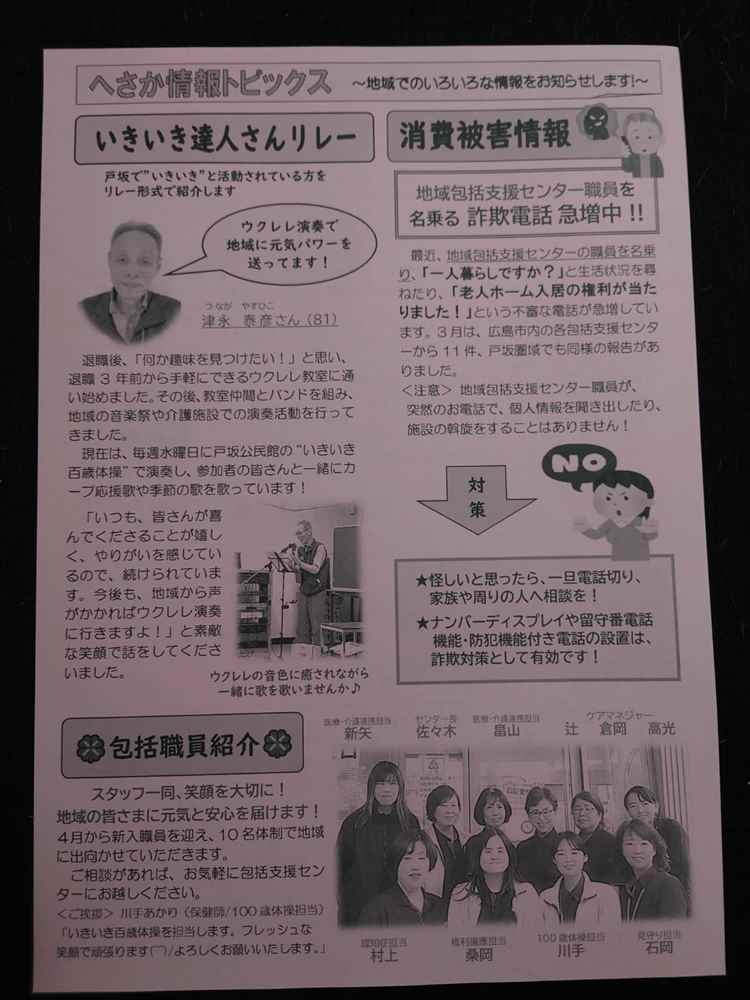 へさか情報トピックス ～地域でのいろいろな情報をお知らせします！～
いきいき達人さんリレー
戸坂で"いきいき"と活動されている方を
リレー形式で紹介します
ウクレレ演奏で
地域に元気パワーを
送ってます！
つなが やすひこ
津永 泰彦さん（81）
退職後、「何か趣味を見つけたい！」と思い、
退職３年前から手軽にできるウクレレ教室に通
い始めました。その後、教室仲間とバンドを組み、
地域の音楽祭や介護施設での演奏活動を行って
きました。
現在は、毎週水曜日に戸坂公民館の"いきいき
百歳体操"で演奏し、参加者の皆さんと一緒にカ
ープ応援歌や季節の歌を歌っています！
「いつも、皆さんが喜
んでくださることが嬉し
く、やりがいを感じてい
るので、続けられていま
す。今後も、地域から声
がかかればウクレレ演奏
に行きますよ！」と素敵
な笑顔で話をしてくださ
いました。
ウクレレの音色に癒されながら
一緒に歌を歌いませんか♪
消費被害情報
地域包括支援センター職員を
名乗る 詐欺電話 急増中！！
最近、地域包括支援センターの職員を名乗
り、「一人暮らしですか？」と生活状況を尋
ねたり、「老人ホーム入居の権利が当た
りました！」という不審な電話が急増していま
す。３月は、広島市内の各包括支援センタ
ーから11件、戸坂圏域でも同様の報告があ
りました。
＜注意＞ 地域包括支援センター職員が、
突然のお電話で、個人情報を聞き出したり、
施設の斡旋をすることはありません！
NO
対
策
★怪しいと思ったら、一旦電話切り、
家族や周りの人へ相談を！
★ナンバーディスプレイや留守番電話
機能・防犯機能付き電話の設置は、
詐欺対策として有効です！
包括職員紹介
スタッフ一同、笑顔を大切に！
地域の皆さまに元気と安心を届けます！
４月から新入職員を迎え、10名体制で地域
に出向かせていただきます。
ご相談があれば、お気軽に包括支援セン
ターにお越しください。
＜ご挨拶＞ 川手あかり（保健師/100歳体操担当）
「いきいき百歳体操を担当します。フレッシュな
笑顔で頑張ります(⌒)/よろしくお願いいたします。」
医療・介護連携担当 センター長 医療・介護連携担当 ケアマネジャー
新矢 佐々木 畠山 辻 倉岡 高光
認知症担当 権利擁護担当 100歳体操担当 見守り担当
村上 桑岡 川手 石岡